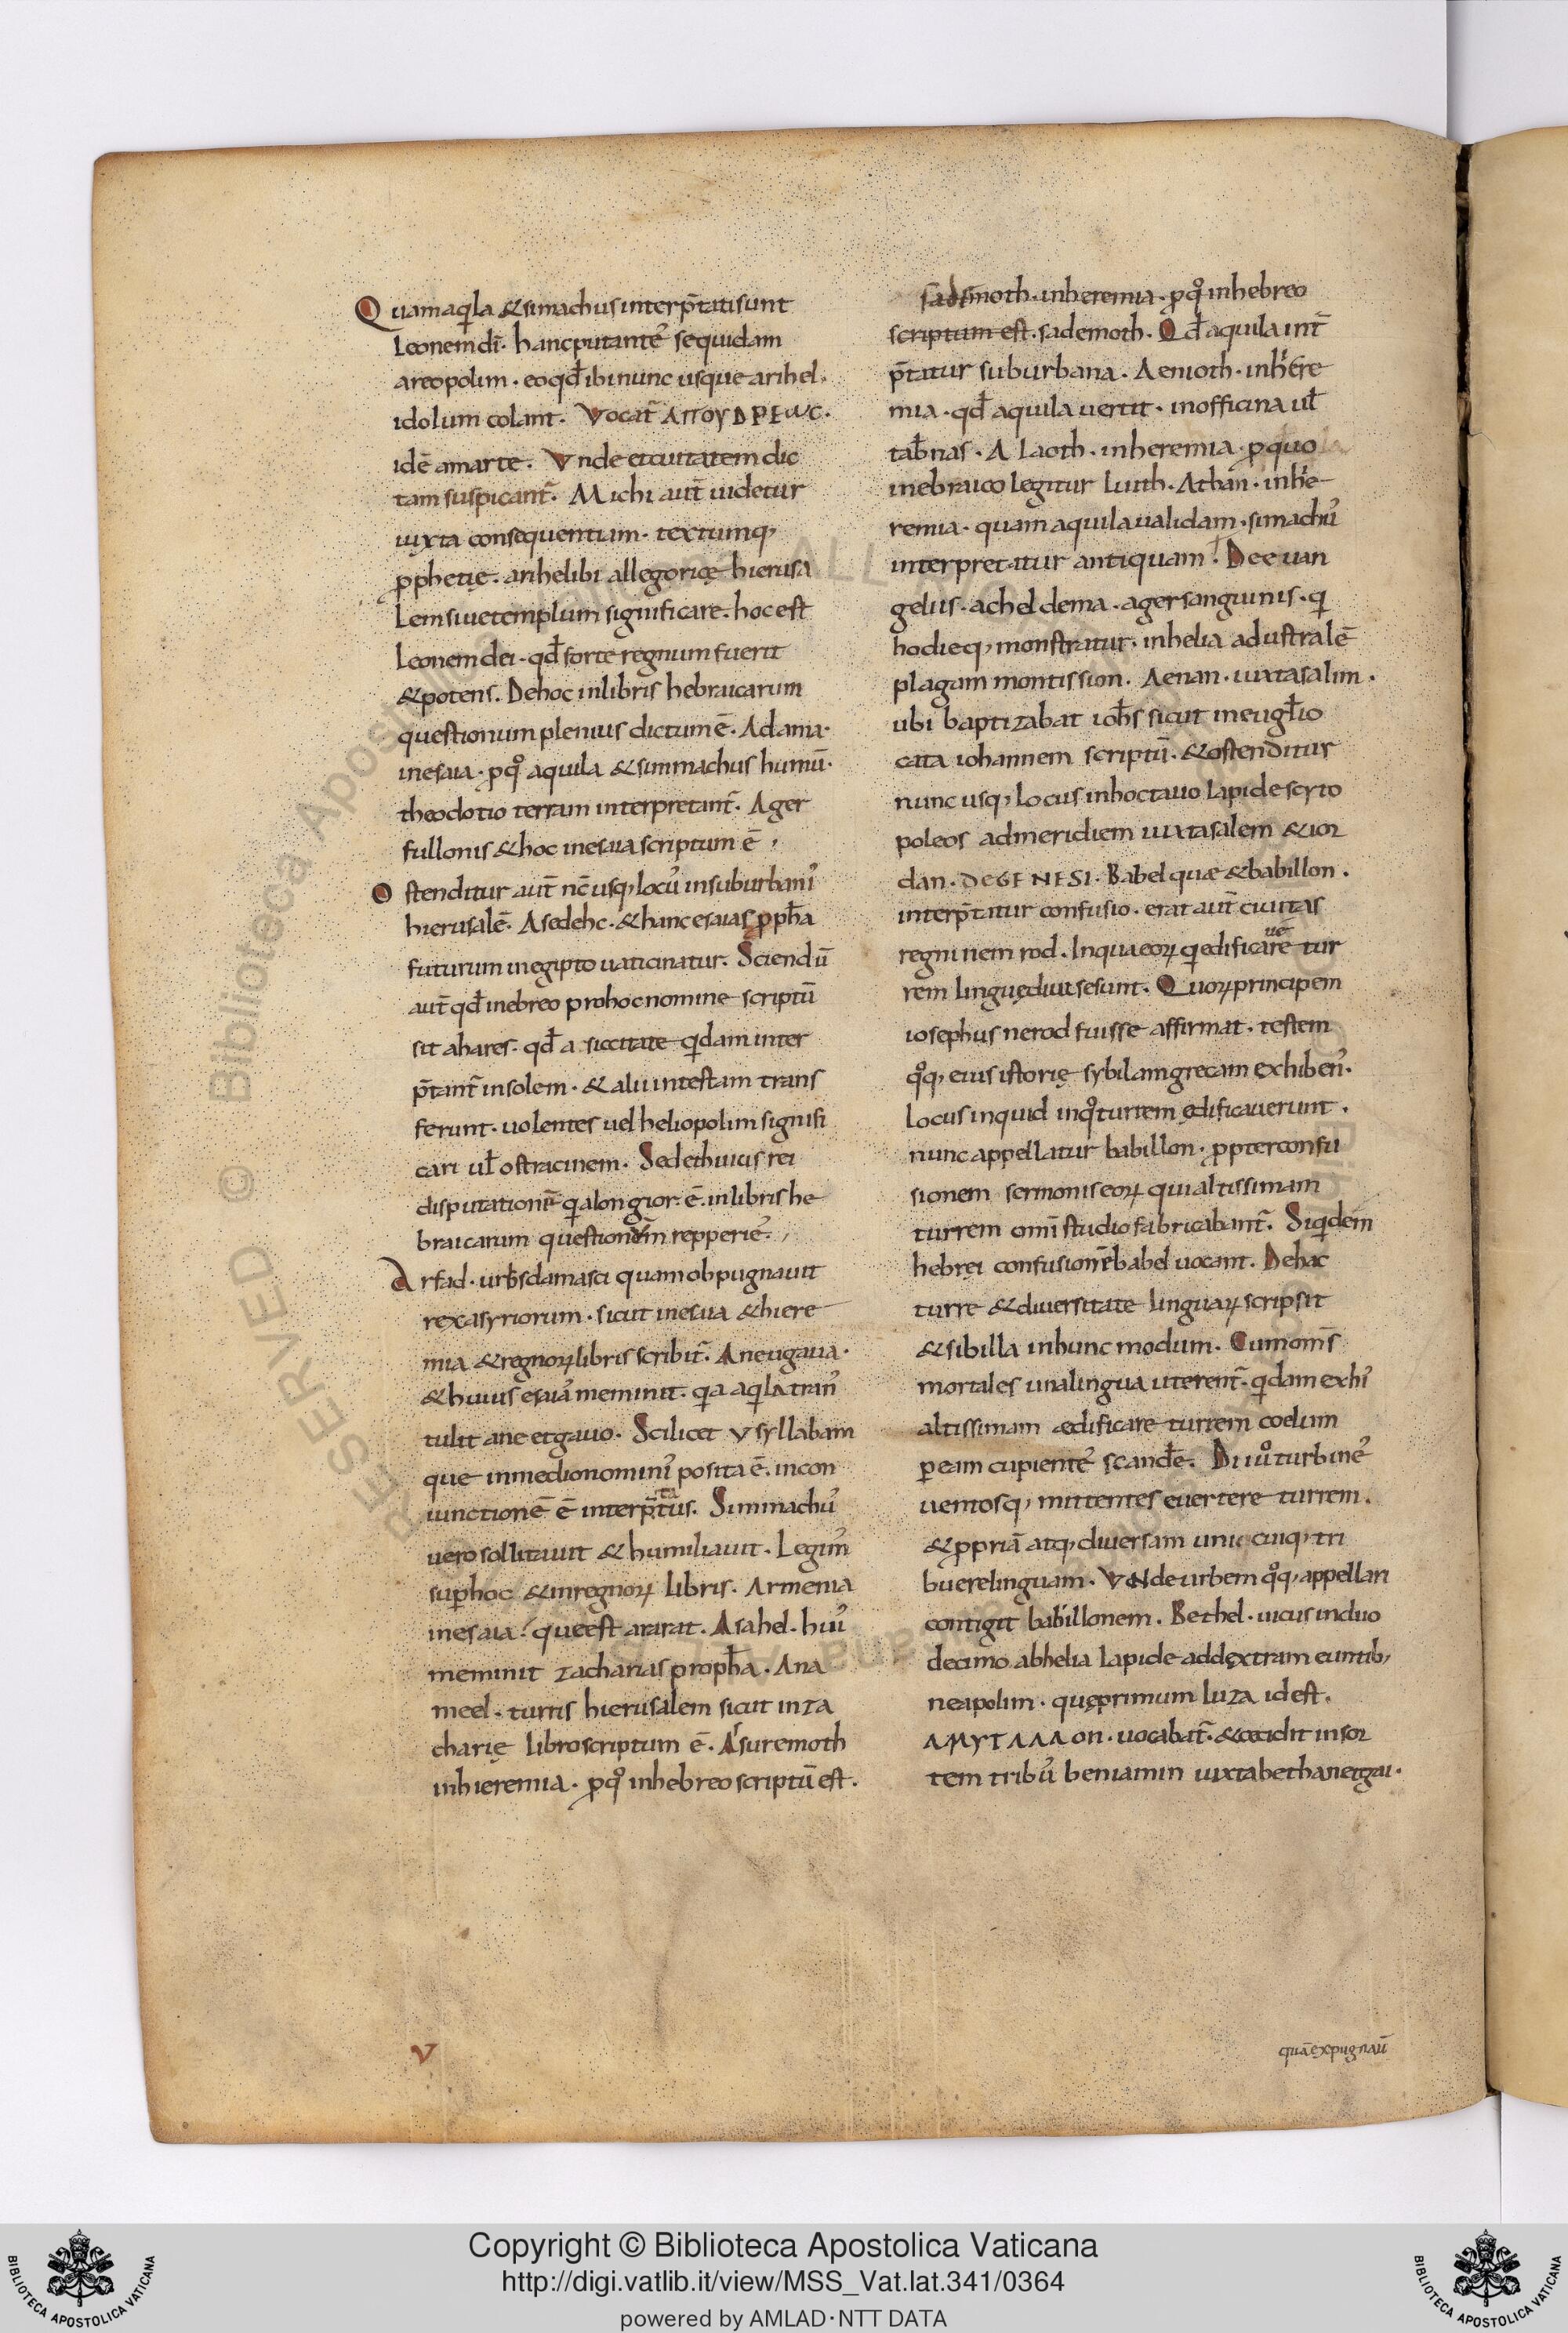 Quam aq̇la & simachus interp̄tati sunt
Leonem dī· hanc putanteʼ se quidam
areopolim· eo qđ ibi nunc usque arihel·
idolum colant. Vocat̄ ΑΠΟΥ DΡΕωC.
idē amarte. Vnde et ciuitatem dic
tam suspicant̄. Michi aut̄ uidetur
iuxta consequentiam· textumq,
ꝓphetię· arihel ibi allegoricę hierusa
Lem siue templum significare· hoc est
Leonem dei· qđ forte regnum fuerit
& potens. De hoc in libris hebraicarum
questionum plenius dictum ē. Adama·
in esaia· ꝑ qͦ aquila & simmachus humū·
theodotio terram interpretant̄. Ager
fullonis & hoc in esaia scriptum ē,
Ostenditur aut̄ nc̄ usq, locuʼ in suburbaniʼ
hierusalē. Asedehc· & hanc esaias ꝓph̄a
futurum in egipto uaticinatur. Sciendū
aut̄ qđ in ebreo pro hoc nomine scriptū
sit ahares· qđ a siccitate q̇dam inter
p̄tant̄ in solem· & alii in testam trans
ferunt· uolentes uel heliopolim signifi
cari ul̄ ostracinem. Sed et huius rei
disputationē q̇a longior ē. in libris he
braicarum questionem repperieʼ,
Arfad· urb̄s damasci quam obpugnauit
rex asyriorum· sicut in esaia & hiere
mia & regnoꝝ libris scribit̄. Aneugaua·
& huius esaiaʼ meminit· q̇a aq̇la tranʼ
tulit ane et gauo. Scilicet v syllabam
que in medio nominiʼ posita ē. in con
iunctionē ē interp̄tatus. Simmachuʼ
uero sollitauit & humiliauit. Legimʼ
suꝑ hoc & in regnoꝝ libris. Armenia
in esaia· que est ararat. Asahel· huiʼ
meminit zacharias proph̄a. Ana
meel· turris hierusalem sicut in za
charię libro scriptum ē. Asuremoth
in hieremia· ꝑ qͦ in hebreo scriptū est.
sademoth· in heremia· ꝑ qͦ in hebreo
scriptum est· sademoth. Qđ aquila int̄
p̄tatur suburbana. Aemoth· in hiere
mia· qđ aquila uertit· in officina ul̄
tab̄nas. A Laoth· in heremia· ꝑ quo
in ebraico legitur luith. Athan· in hie
remia· quam aquila ualidam· simachuʼ
interpretatur antiquam. De euan
geliis· acheldema· ager sanguinis· q̇
hodieq, monstratur· in helia ad ustralē
plagam montis sion. Aenan· iuxta salim.
ubi baptizabat ioh̄s sicut in eugl̄io
cata iohannem scriptū· & ostenditur
nunc usq, Locus in hoctauo lapide scyto
poleos ad meridiem iuxta salem & ior
dan. DE GENESI. Babel quæ & babillon.
interp̄tatur confusio· erat aut̄ ciuitas
regni nem rod. In qua eoꝝ q̇ edificauere tur
rem linguę diuise sunt. Quoꝝ principem
iosephus nerod fuisse affirmat· testem
qͦq, eius istorię sybilam grecam exhibenʼ.
Locus inquid in qͦ turrem ędificauerunt.
nunc appellatur babillon· ꝓpter confu
sionem sermonis eoꝝ qui altissimam
turrem omī studio fabricabant̄. Siq̇dem
hebręi confusionē babel uocant. De hac
turre & diuersitate linguaꝝ scripsit
& sibilla in hunc modum. Cum om̄s
mortales una lingua uterent̄· q̇dam ex hiʼ
altissimam ædificare turrem coelum
ꝑ eam cupienteʼ scand̄e. Di uͦ turbineʼ
uentosq, mittentes euertere turrem.
& ꝓpriā atq, diuersam unicuiq, tri
buere linguam. VNde urbem qͦq, appellari
contigit babillonem. Bethel· uicus in duo
decimo ab helia lapide ad dextram euntib,
neapolim· quę primum luza id est.
ΑΜΥΓΔΑΛΟΝ· uocabat̄· & cecidit in sor
tem tribuʼ beniamin iuxta bethauen et gai.
v
quā expugnauī
Copyright © Biblioteca Apostolica Vaticana
http://digi.vatlib.it/view/MSS_Vat.lat.341/0364
powered by AMLAD·NTT DATA